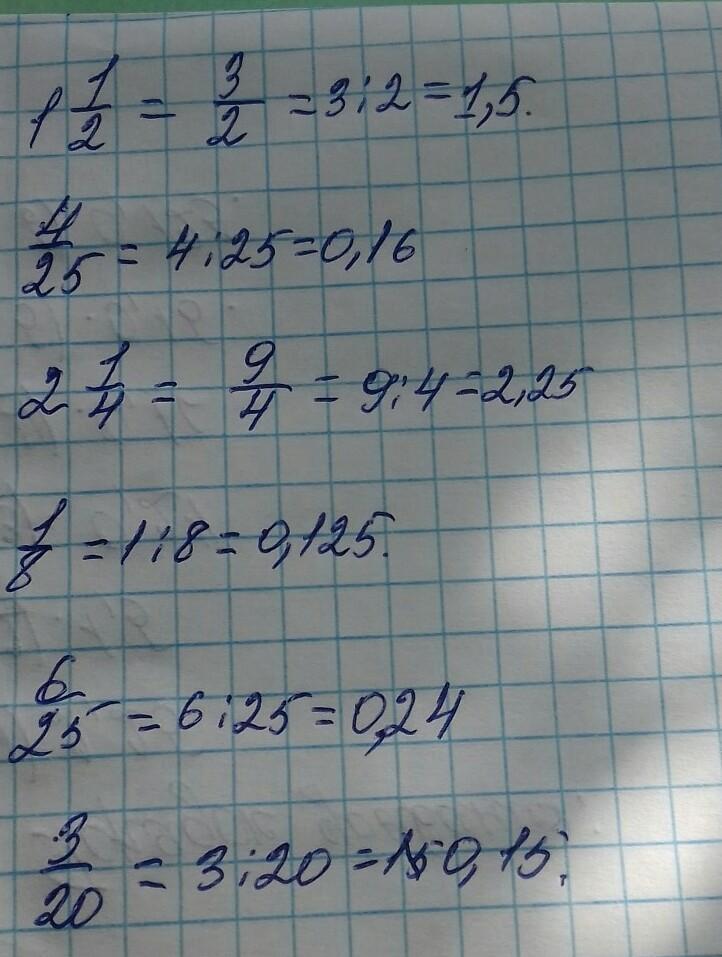 1 1/2 = 3/2 = 3:2 = 1,5.
4/25 = 4:25 = 0,16
2 1/4 = 9/4 = 9:4 = 2,25
1/8 = 1:8 = 0,125.
6/25 = 6:25 = 0,24
3/20 = 3:20 = 0,15;